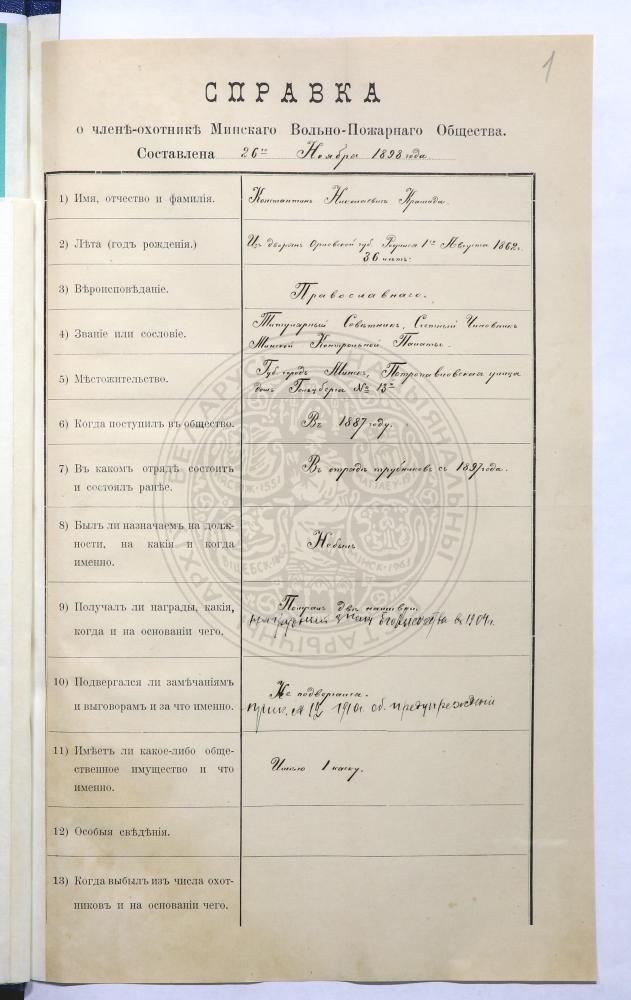 1
СПРАВКА
о членѣ-охотникѣ Минскаго Вольно-Пожарнаго Общества.
Составлена 26го Ноября 1898 года.
1) Имя, отчество и фамилія.
Константинъ Николаевичъ
2) Лѣта (годъ рожденія.)
Изъ дворянъ Орловской губ. Родился 1го Августа 1862 г.
36 лѣтъ.
3) Вѣроисповѣданіе.
Православнаго.
4) Званіе или сословіе.
Титулярный Совѣтникъ, Счетный Чиновникъ
Минской Контрольной Палаты.
5) Мѣстожительство.
Губ. городъ Минскъ, Петропавловская улица
домъ Гольдберга № 13й
6) Когда поступилъ въ общество.
Въ 1887 году.
7) Въ какомъ отрядѣ состоитъ
и состоялъ ранѣе.
Въ отрядѣ трубниковъ съ 1897 года.
8) Былъ ли назначаемъ на долж-
ности, на какія и когда
именно.
Не былъ
9) Получалъ ли награды, какія,
когда и на основаніи чего.
двѣ нашивки.
знак в 1904 г.
10) Подвергался ли замѣчаніямъ
и выговорамъ и за что именно.
Не подвергался.
Прик. № 12 1910 г. об. предупрежденіи
11) Имѣетъ ли какое-либо обще-
ственное имущество и что
именно.
Имѣю 1 каску.
12) Особыя свѣдѣнія.
13) Когда выбылъ изъ числа охот-
никовъ и на основаніи чего.